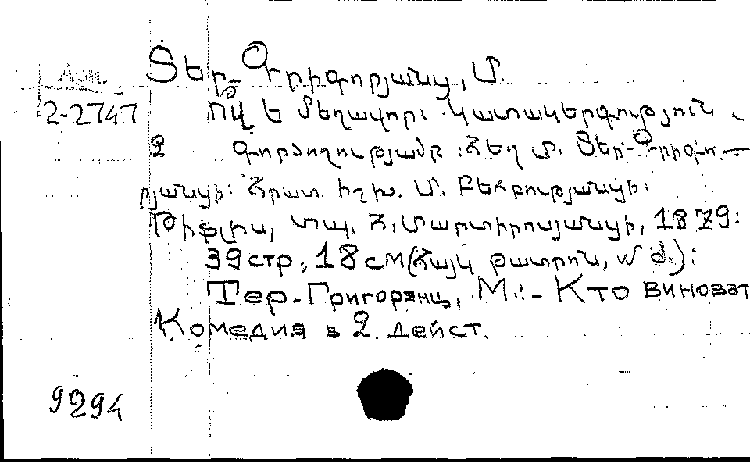 Арм.
Տեր-Գրիգորյանց, Մ.
2-2747 Ով է մեղավոր: Կատակերգություն
2 գործողությամբ: Հեղ. Մ. Տեր-Գրիգո-
րյանցի: Հրատ. իշխ. Մ. Բեհբությանցի:
Թիֆլիս, տպ. Հ. Մարտիրոսյանցի, 1879:
39 стр, 18 см (Հայկ թատրոն, № d.):
Тер-Григорянц, М.:- Кто виноват
Комедия в 2 дейст.
9294